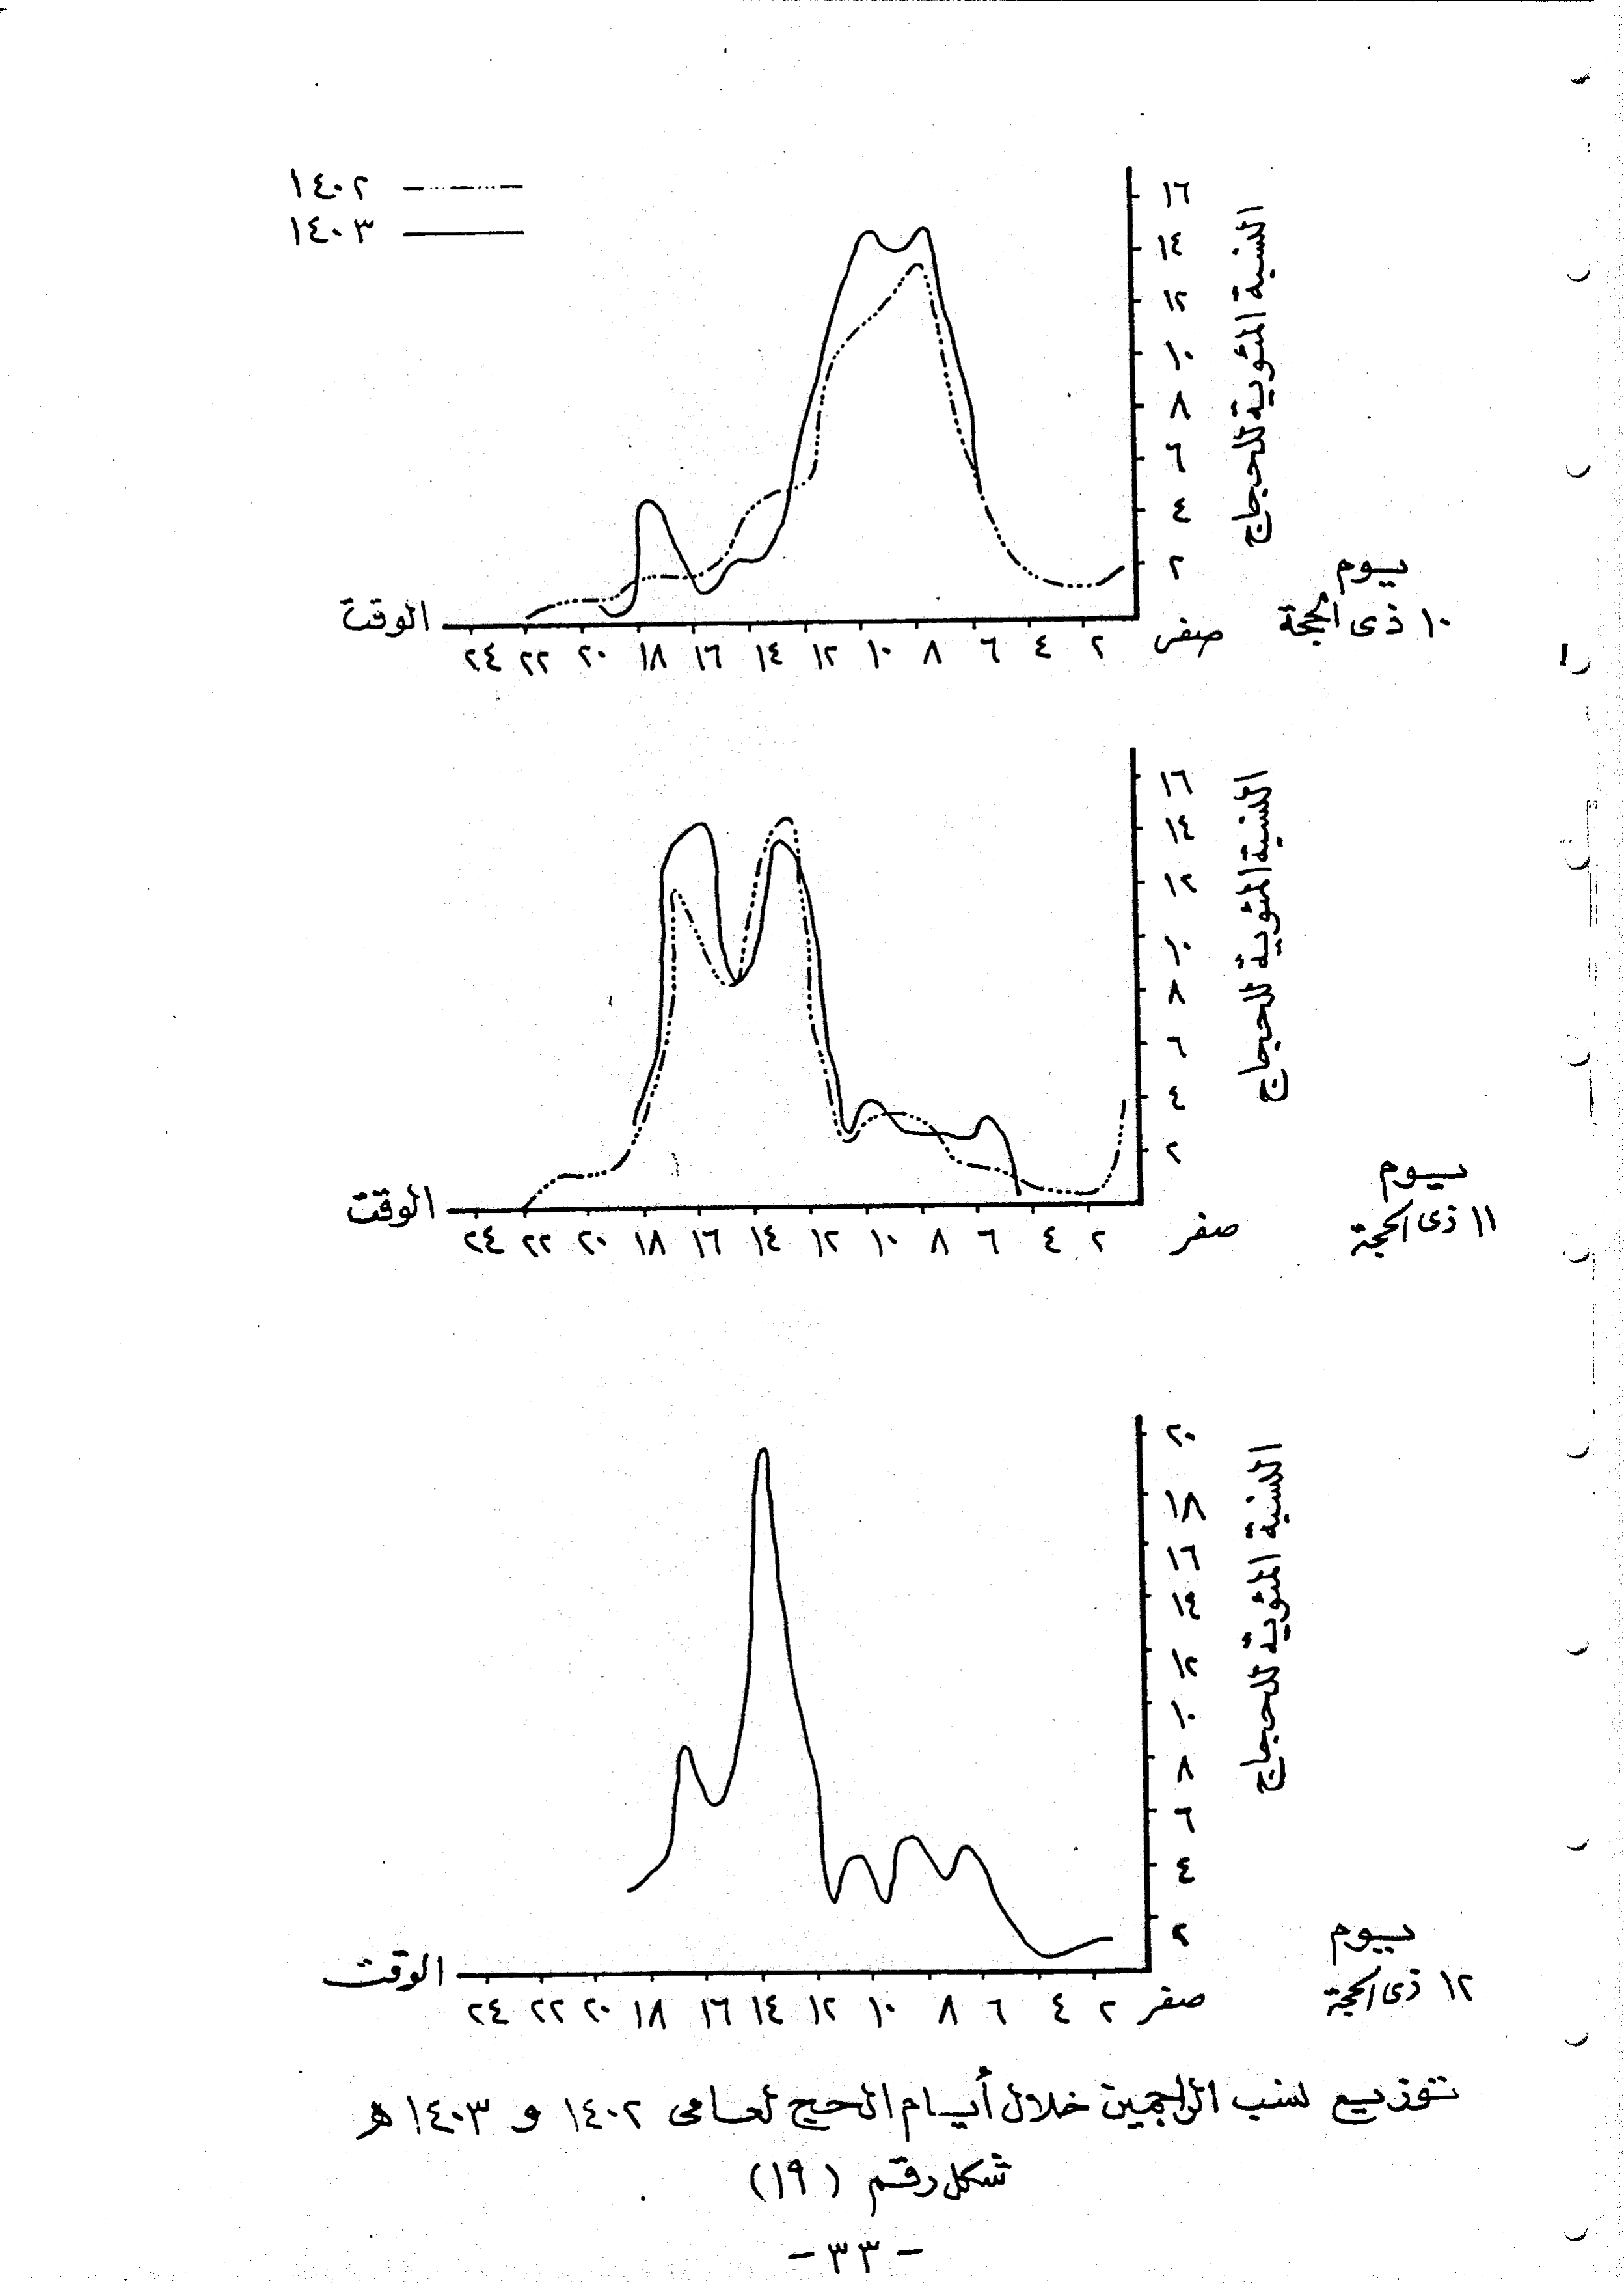 ١٤٠٢
١٤٠٣
النسبة المئوية للحجاج
١٦
١٤
١٢
١٠
٨
٦
٤
٢
يوم
١٠ ذى الحجة
صفر ٢ ٤ ٦ ٨ ١٠ ١٢ ١٤ ١٦ ١٨ ٢٠ ٢٢ ٢٤ الوقت
النسبة المئوية للحجاج
١٦
١٤
١٢
١٠
٨
٦
٤
٢
يوم
١١ ذى الحجة
صفر ٢ ٤ ٦ ٨ ١٠ ١٢ ١٤ ١٦ ١٨ ٢٠ ٢٢ ٢٤ الوقت
النسبة المئوية للحجاج
٢٠
١٨
١٦
١٤
١٢
١٠
٨
٦
٤
٢
يوم
١٢ ذى الحجة
صفر ٢ ٤ ٦ ٨ ١٠ ١٢ ١٤ ١٦ ١٨ ٢٠ ٢٢ ٢٤ الوقت
توزيع نسب الراجمين خلال أيام الحج لعامى ١٤٠٢ و ١٤٠٣ هـ
شكل رقم (١٩)
- ٣٣ -